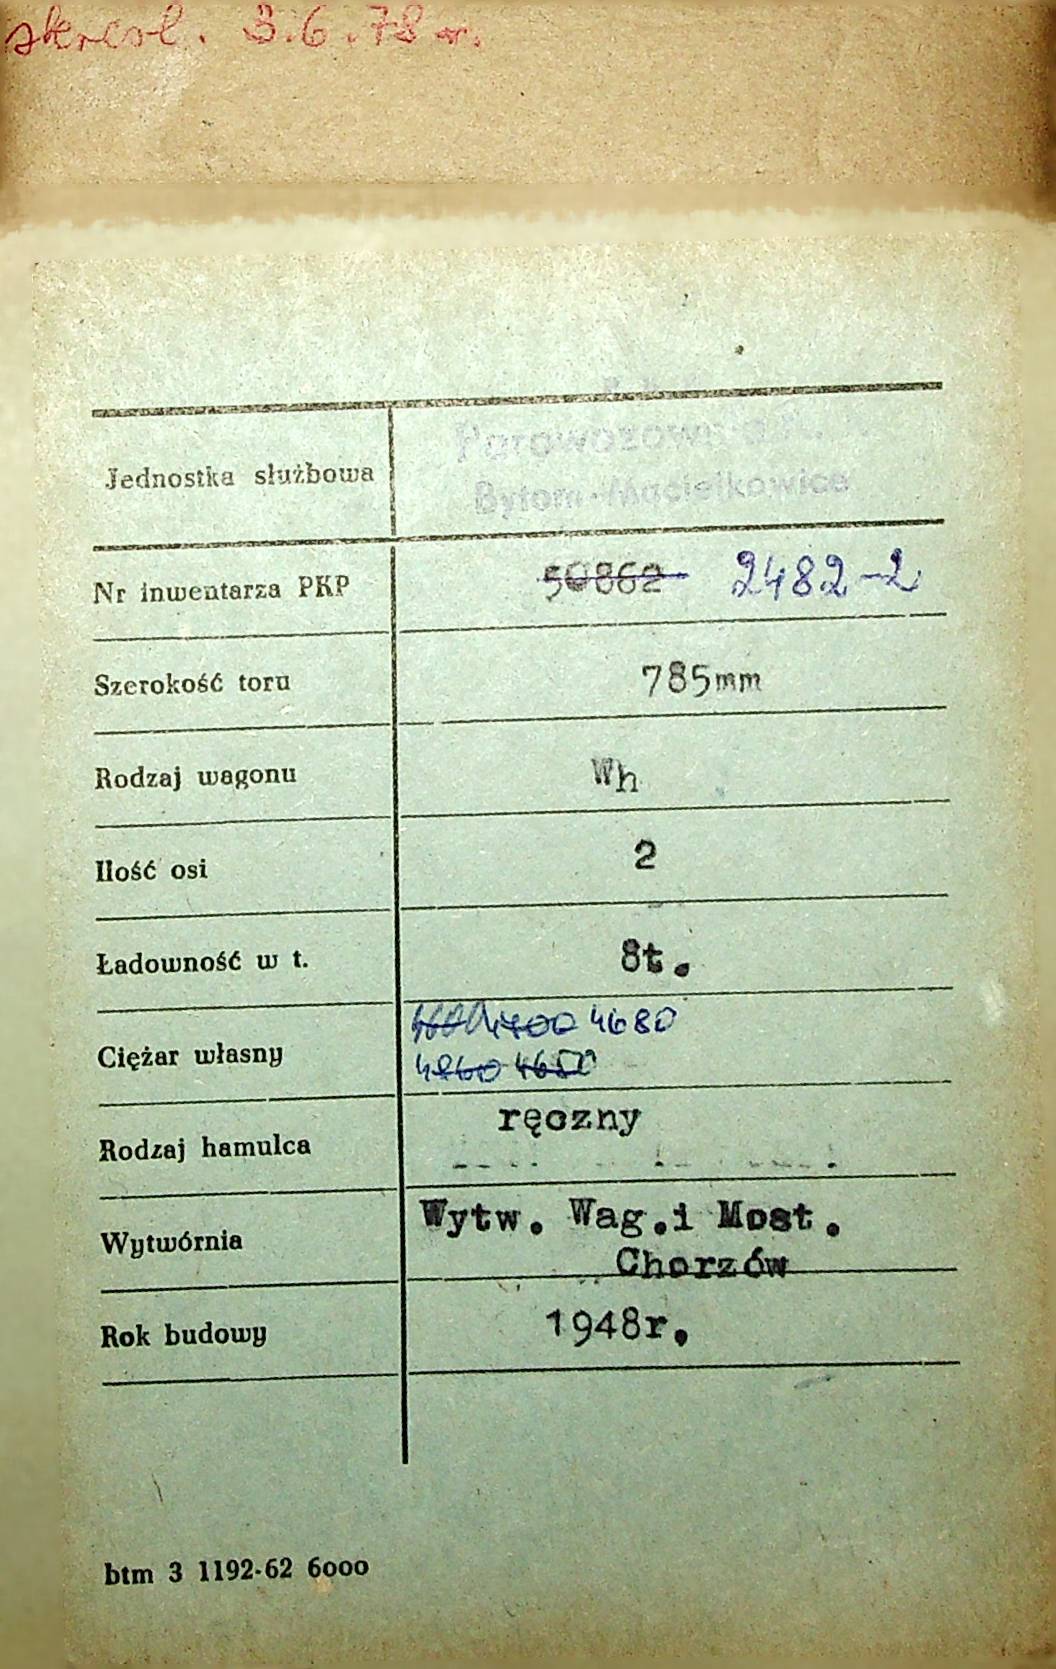 skreśl. 3.6.78 r.
Parowozownia
Bytom-Maciejkowice
Jednostka służbowa
Nr inwentarza PKP 50862 2482-2
Szerokość toru 785mm
Rodzaj wagonu Wh
Ilość osi 2
Ładowność w t. 8t.
4700 4680
Ciężar własny
4860 4650
Rodzaj hamulca ręczny
Wytwórnia Wytw. Wag.i Most.
Chorzów
Rok budowy 1948r.
btm 3 1192-62 6ooo